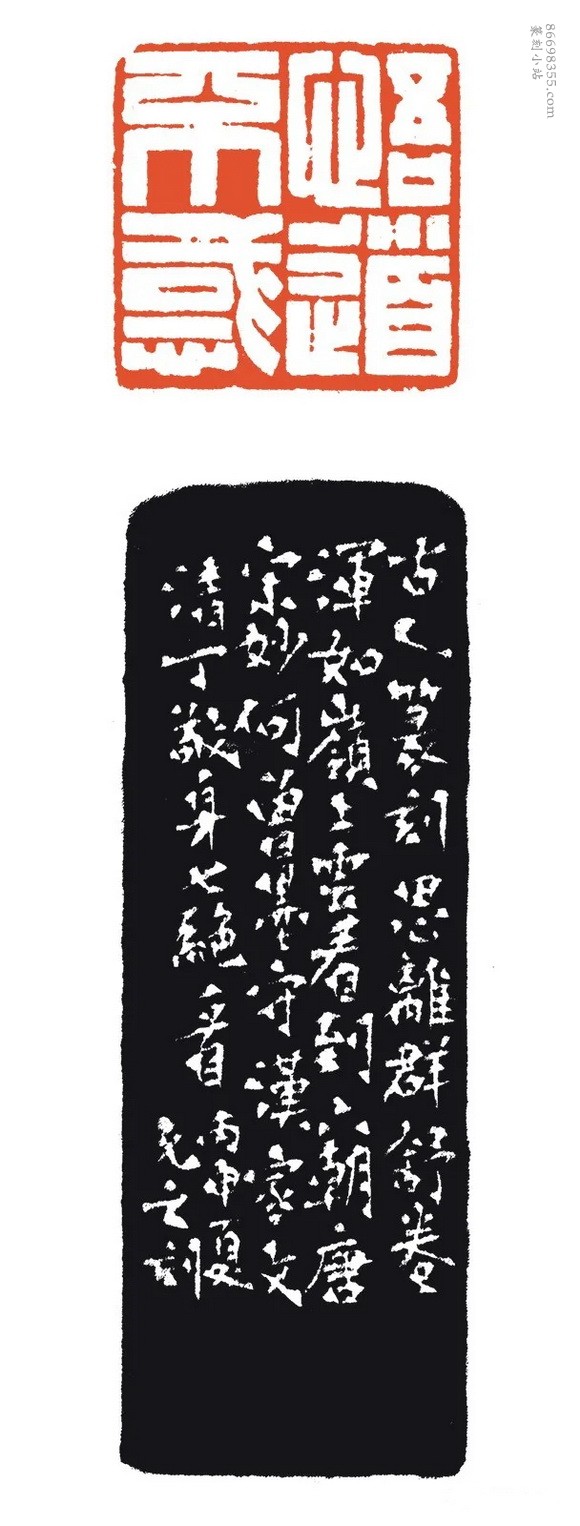 恪道
不惑
古人篆刻思離群舒卷
渾如嶺上雲看到六朝唐
宋妙何曾墨守漢家文
清丁敬身七絕一首
丙申夏
刻
86698355.com
篆刻小站